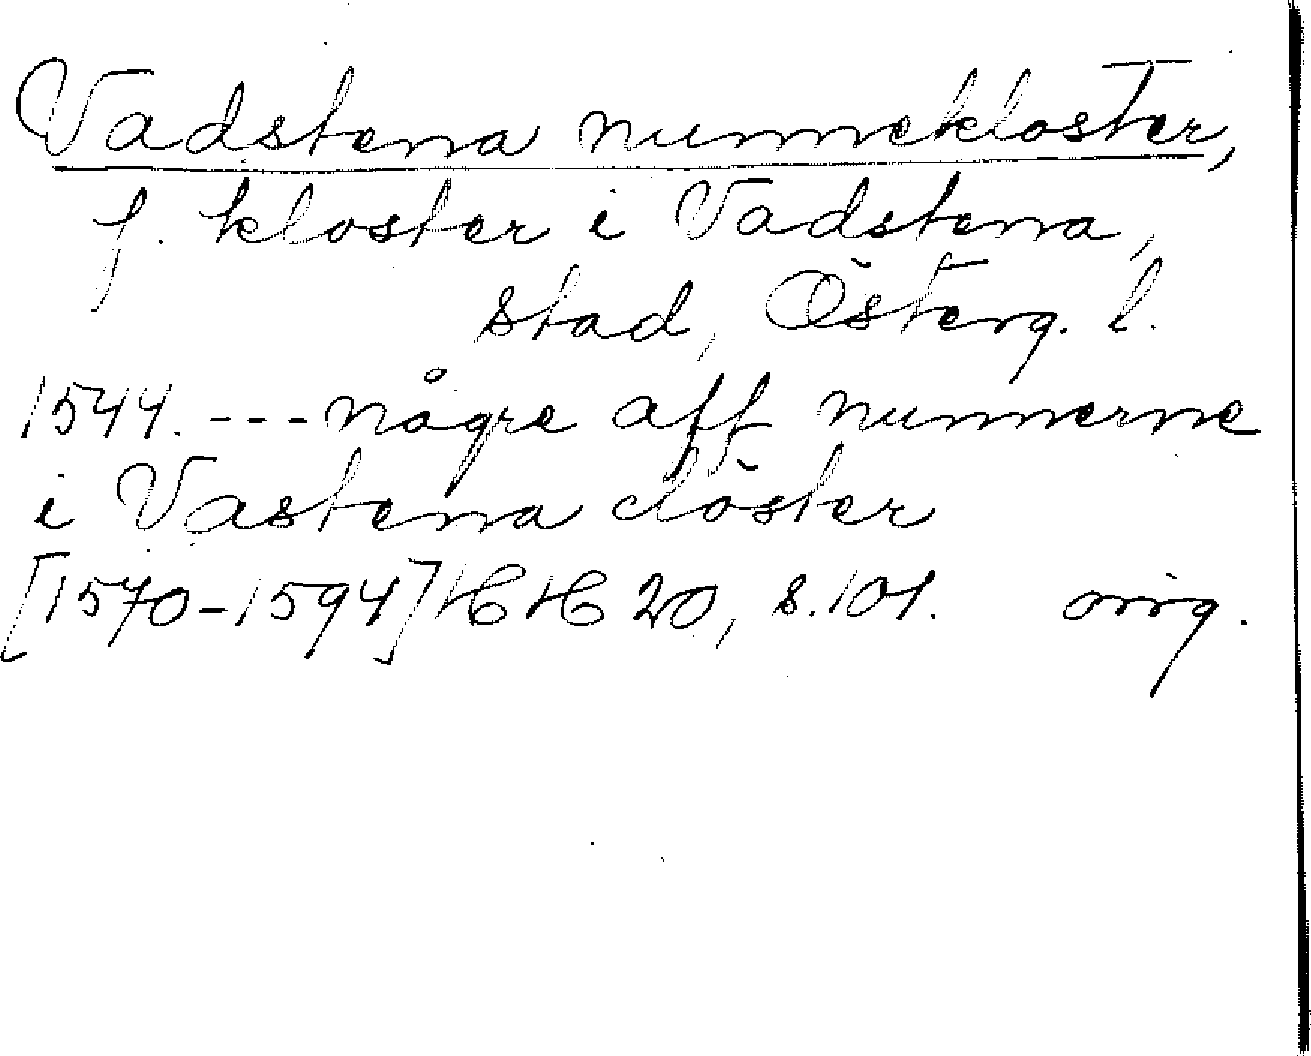 Vadstena nunnekloster,
f. kloster i Vadstena,
stad, Österg. l.
1544. --- någre aff nunnerne
i Vastena clöster
[1570-1594] HH 20, s. 101. orig.